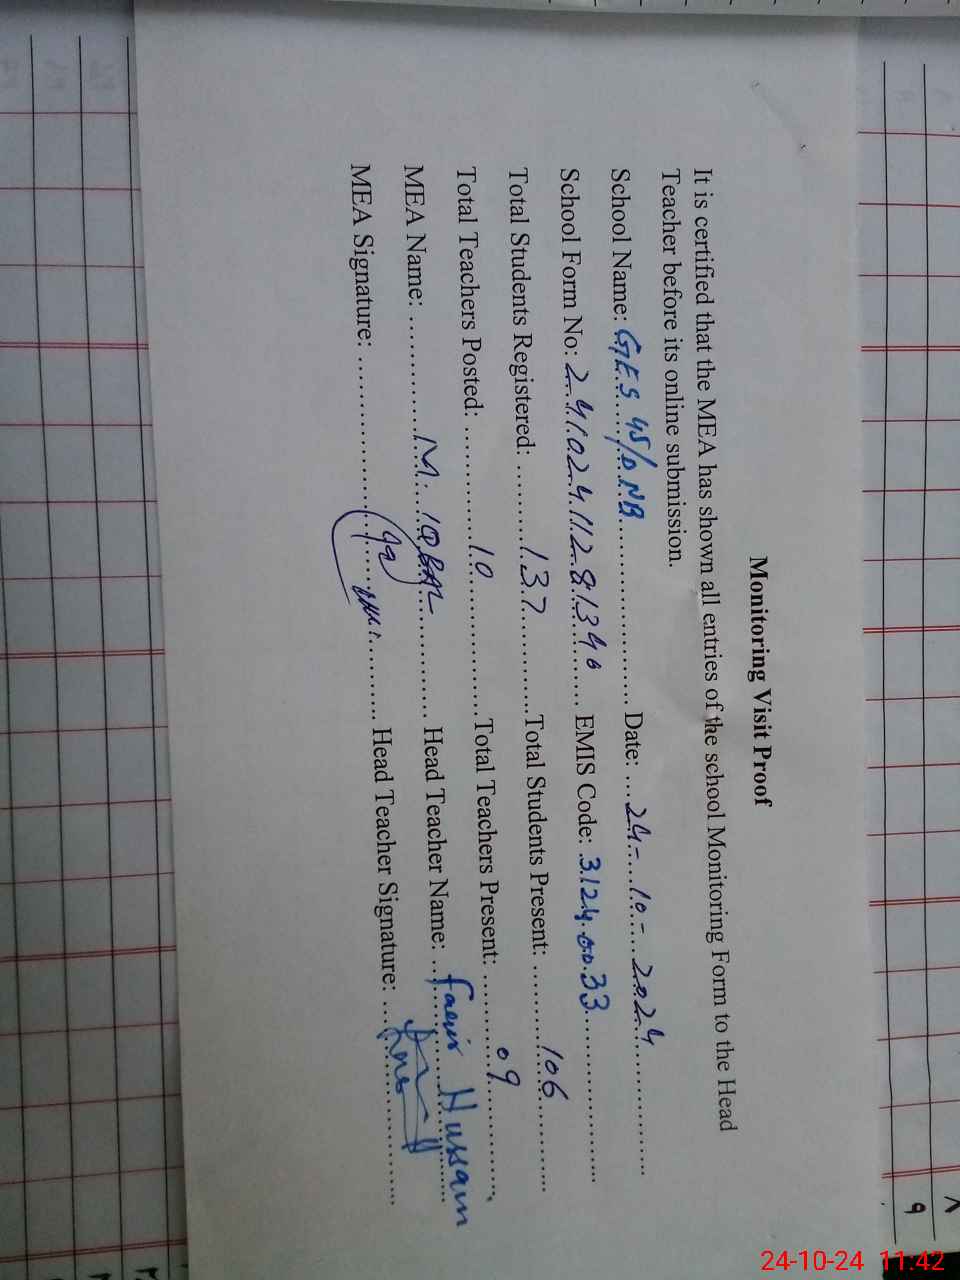 Monitoring Visit Proof
It is certified that the MEA has shown all entries of the school Monitoring Form to the Head
Teacher before its online submission.
School Name: GES 45/DNB Date: 24-10-2024
School Form No: 24102411281340 EMIS Code: 31240033
Total Students Registered: 137 Total Students Present: 106
Total Teachers Posted: 10 Total Teachers Present: 09
MEA Name: M. IQBAL Head Teacher Name: Hussain
MEA Signature: Head Teacher Signature:
9
24-10-24 11:42